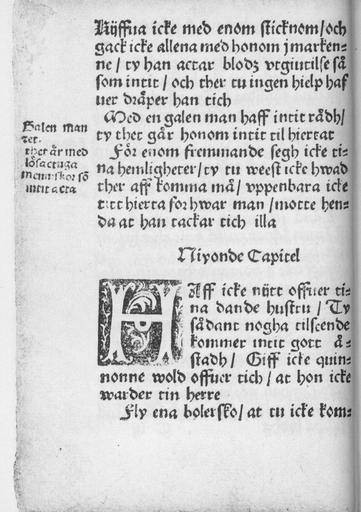 Kijffua icke med enom sticknom/och
gack icke allena med honom j marken⸗
ne/ty han actar blodz vtgiutilse så
som intit/och ther tu ingen hielp haf
uer dräper han tich
Med en galen man haff intit rådh/
ty thet går honom intit til hiertat
För enom fremmande segh icke ti⸗
na hemligheter/ty tu weest icke hwad
ther aff komma må/vppenbara icke
titt hierta for hwar man/motte hen⸗
da at han tackar tich illa
Galen man
etc.
thet är med
lösactuga
menniskor så
intit acta
Niyonde Capitel
HAff icke nijtt offuer ti⸗
na dande hustru/Ty
sådant nogha tilseende
kommer intit gott å⸗
stadh/Giff icke quin⸗
nonne wold offuer tich/at hon icke
warder tin herre
Fly ena bolersko/at tu icke kom⸗